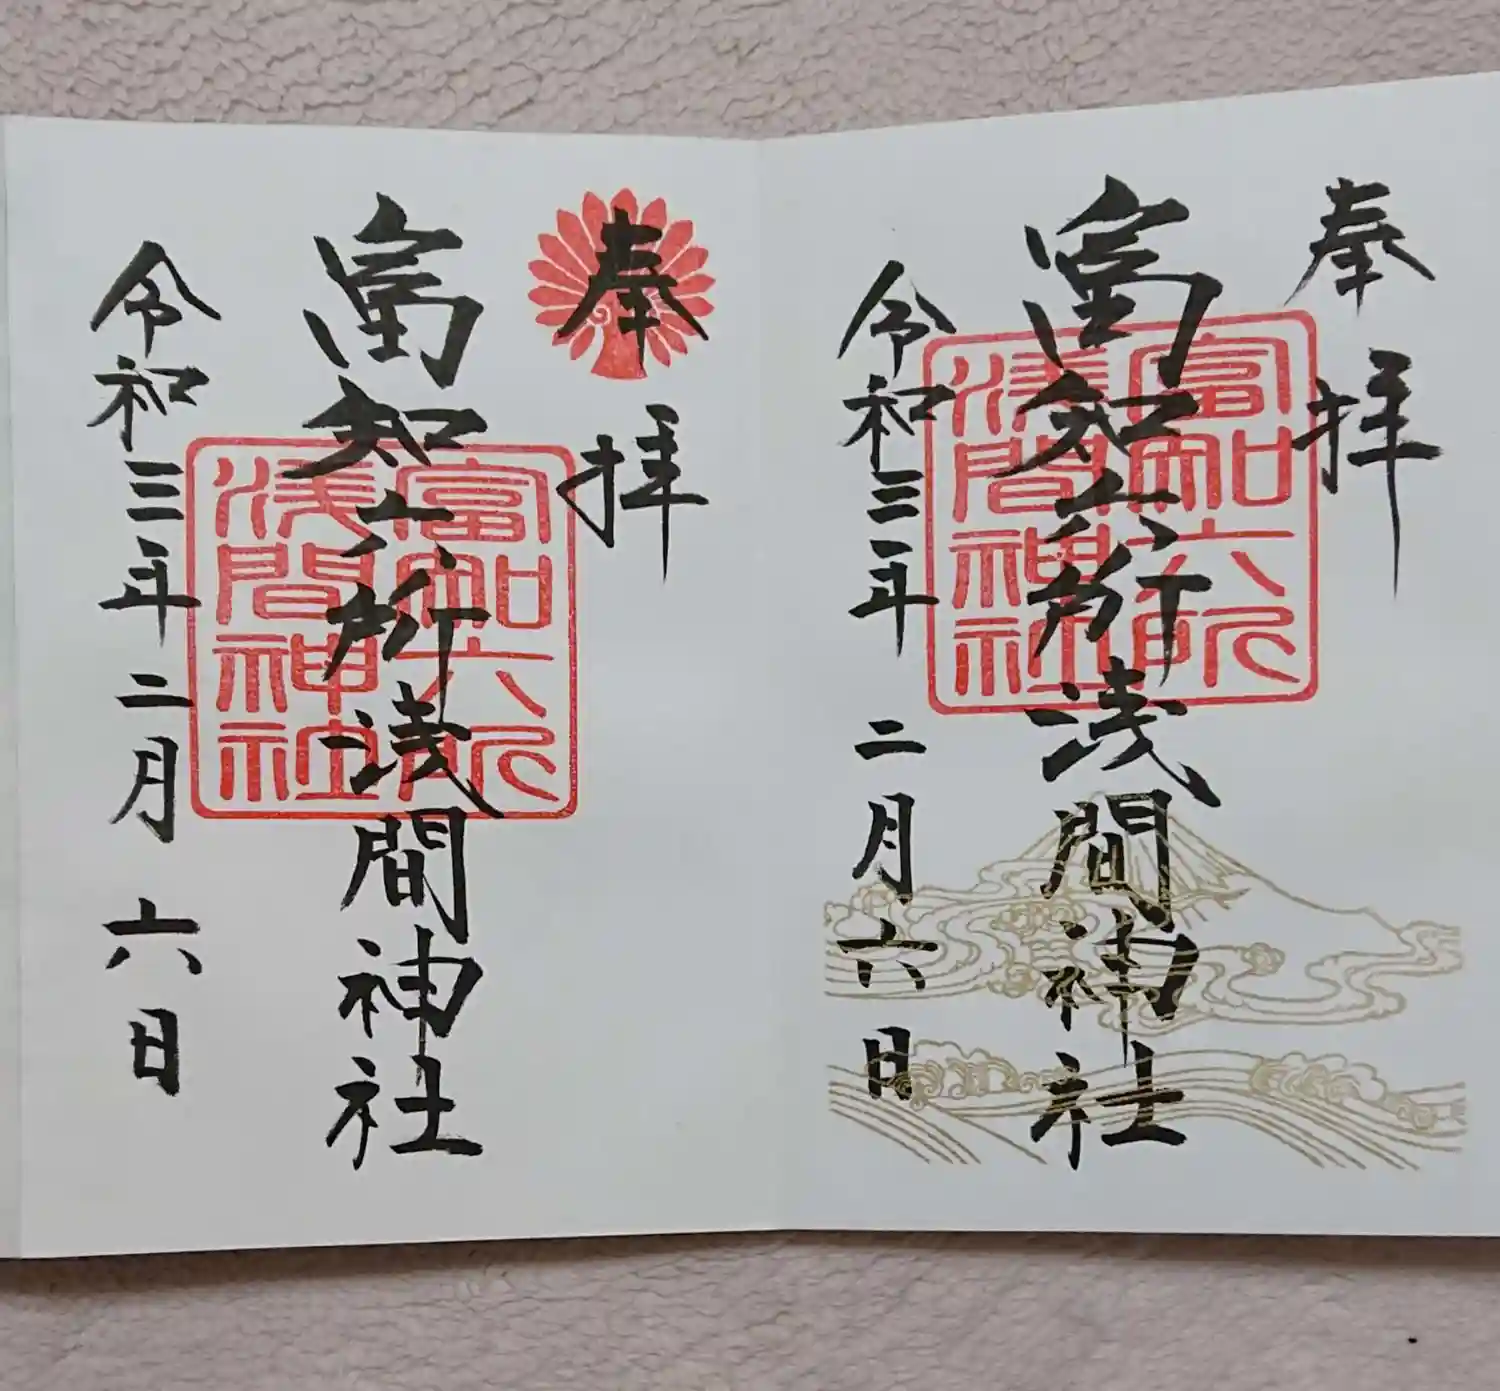 奉拝
富知六所浅間神社
富知六所
浅間神社
令和三年二月六日
奉拝
富知六所浅間神社
富知六所
浅間神社
令和三年二月六日